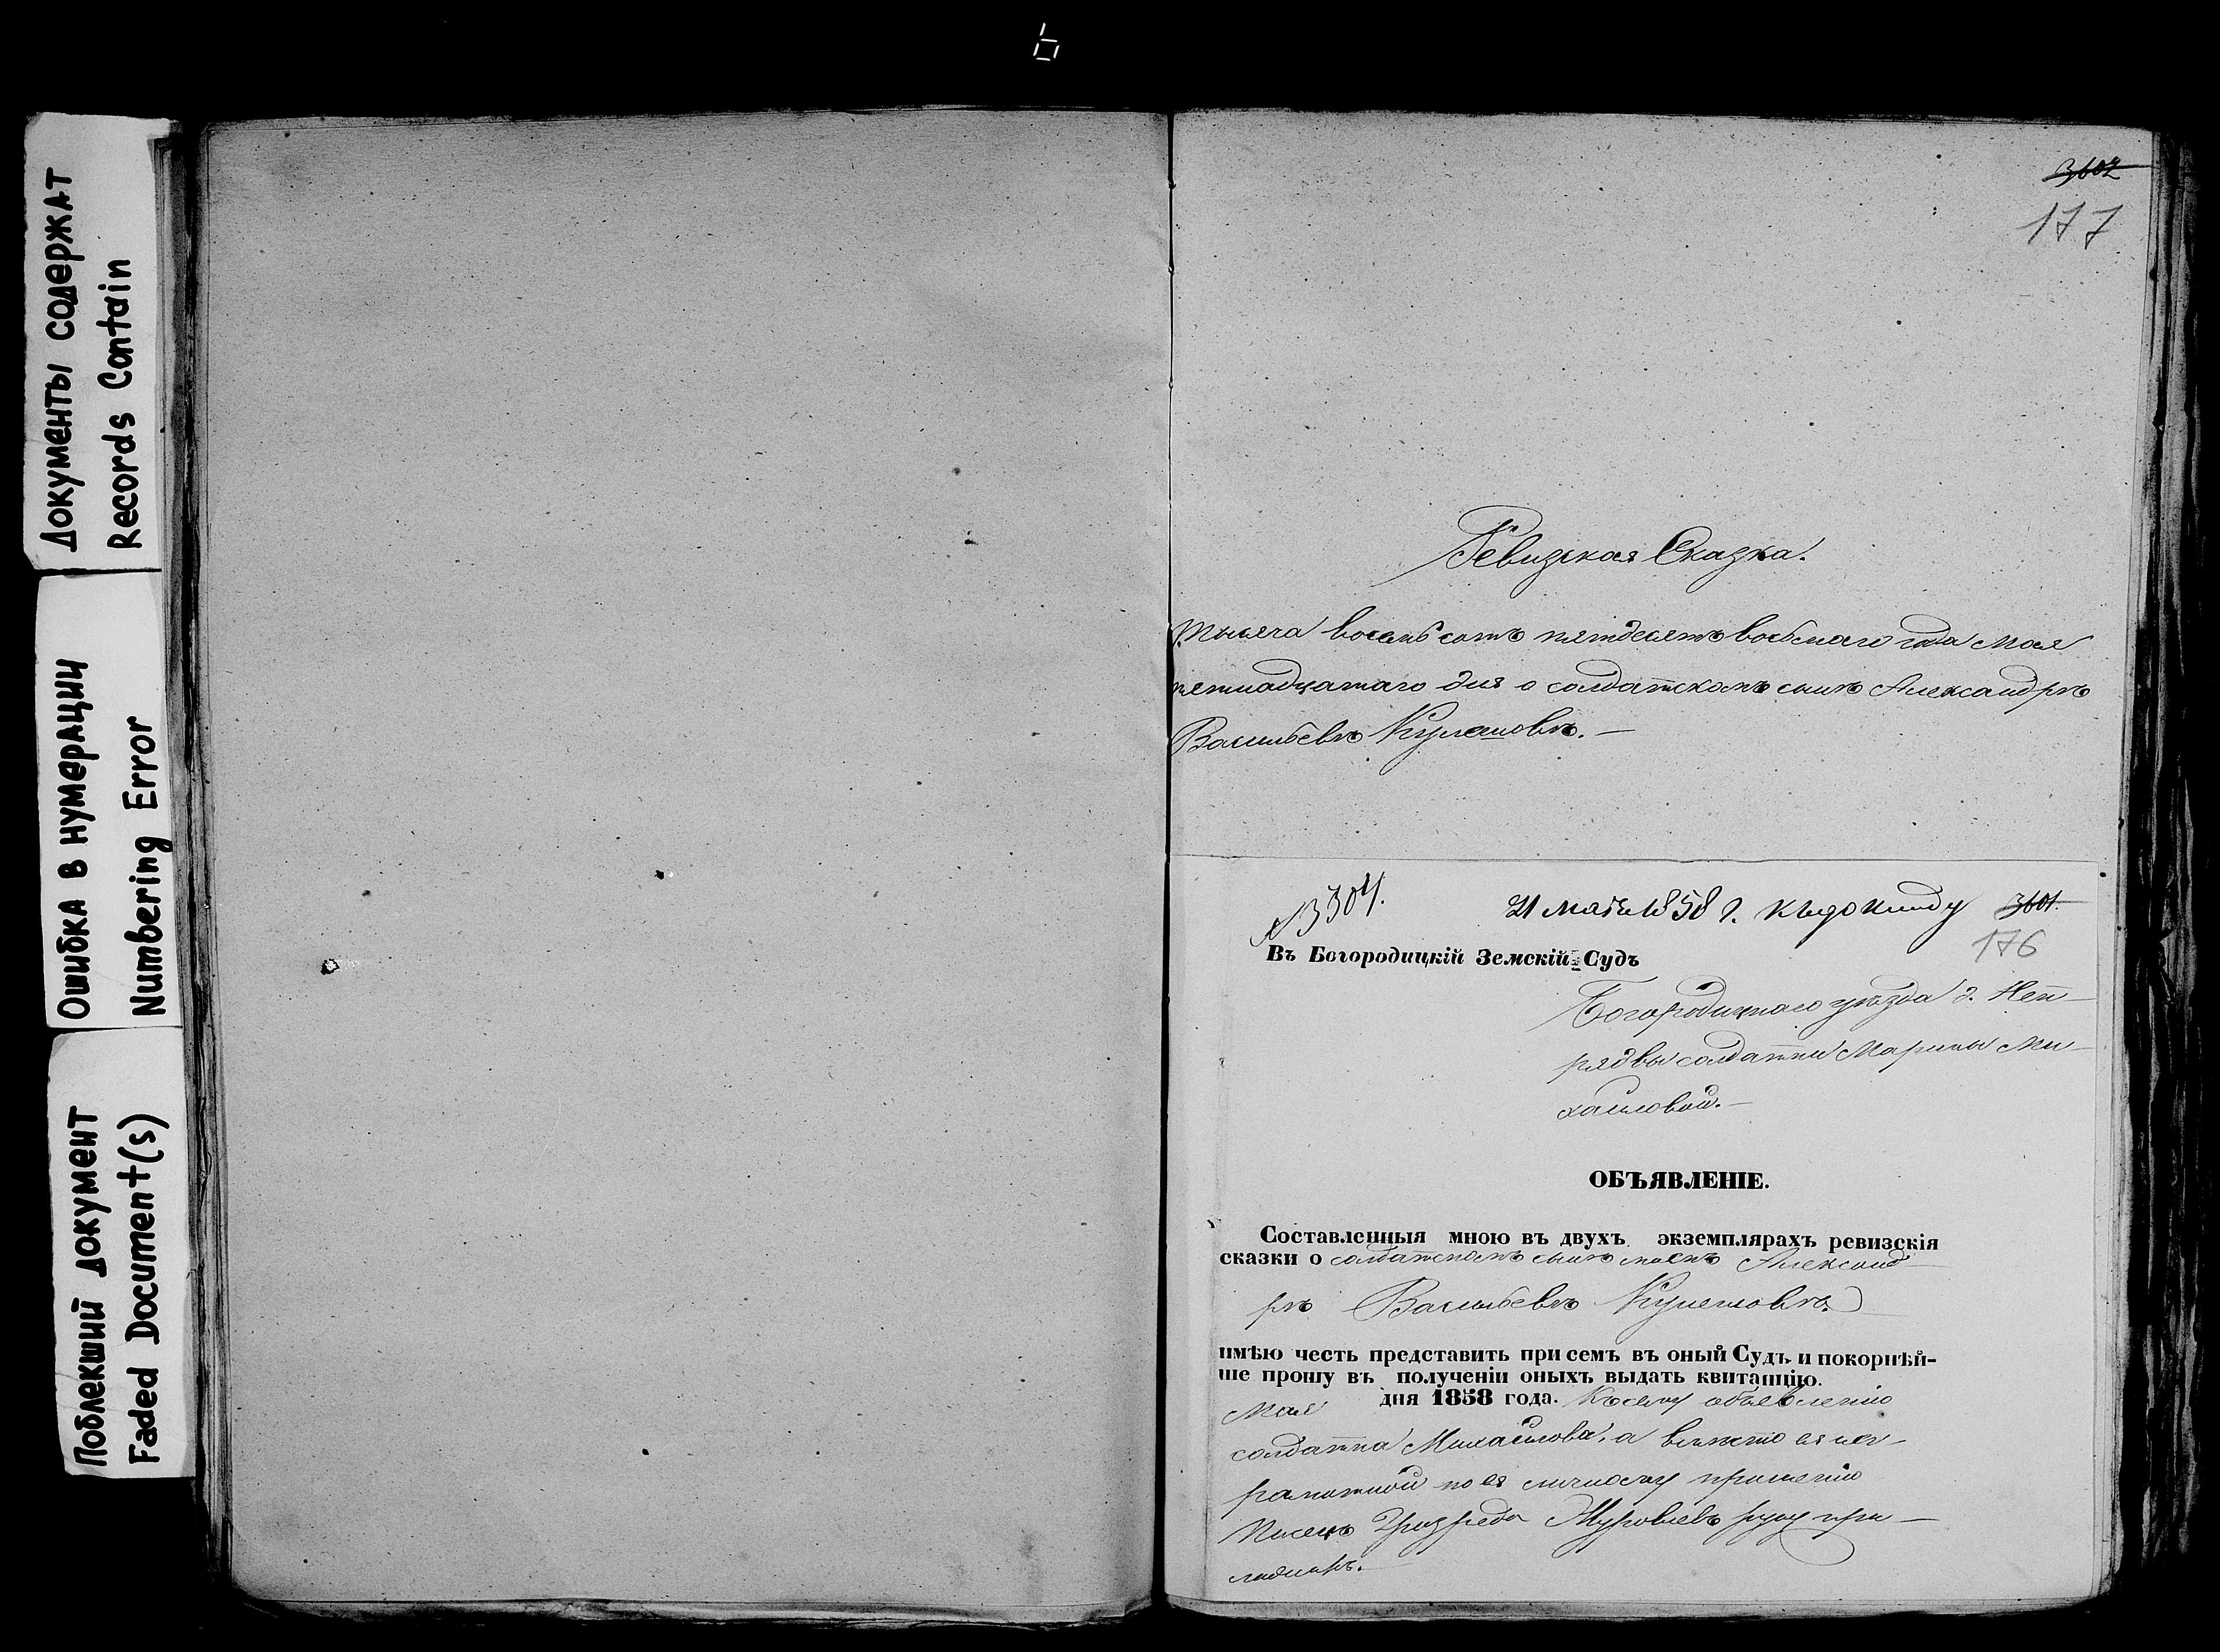 6
Документы содержат
Records Contain
Ошибка в нумерации
Numbering Error
Поблекший документ
Faded Document(s)
3602
177
Ревизская Сказка.
Тысяча восемьсотъ пятдесятъ восьмаго года Мая
пятнадцатаго дня о солдатскомъ сынѣ Александрѣ
Васильевѣ Кулешовѣ. —
№ 3304.
21 мая 1858 г.
3601.
176
Въ Богородицкій Земскій Судъ
Богородицкаго уѣзда д. Неп-
рядвы солдатки Марины Ми-
хайловой. —
ОБЪЯВЛЕНІЕ.
Составленныя мною въ двухъ экземплярахъ ревизскія
сказки о солдатскомъ сынѣ моемъ Александ-
рѣ Васильевѣ Кулешовѣ
имѣю честь представить при семъ въ оный Судъ и покорнѣй-
ше прошу въ полученіи оныхъ выдать квитанцію.
Мая дня 1858 года. Къ сему объявленію
солдатка Михайлова, а вмѣсто ея нег-
рамотной по ея личному прошенію
Писецъ 2го разряда Муровлевъ руку при-
ложилъ. —